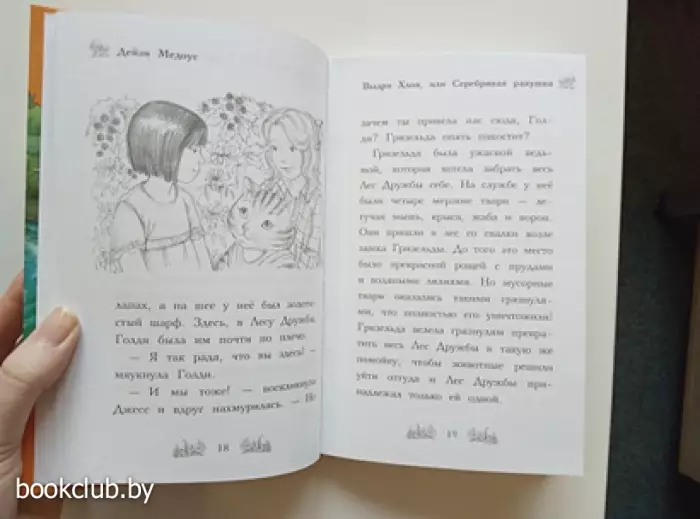 Дейзи Медоус
лапах, а на шее у неё был золо-
стый шарф. Здесь, в Лесу Дружбы,
Голди была им почти по плечо.
— Я так рада, что вы здесь! —
мяукнула Голди.
— И мы тоже! — воскликнула
Джесс и вдруг нахмурилась. — Но
18
Выдра Хлоя, или Серебряная ракушка
зачем ты привела нас сюда, Гол-
ди? Гризельда опять пакостит?
Гризельда была ужасной ведь-
мой, которая хотела забрать весь
Лес Дружбы себе. На службе у неё
были четыре мерзкие твари — ле-
тучая мышь, крыса, жаба и ворон.
Они пришли в лес со свалки возле
замка Гризельды. До того это место
было прекрасной рощей с прудами
и водяными лилиями. Но мусорные
твари оказались такими грязнуля-
ми, что полностью его уничтожили!
Гризельда велела грязнулям превра-
тить весь Лес Дружбы в такую же
помойку, чтобы животные решили
уйти оттуда и Лес Дружбы при-
надлежал только ей одной.
19
bookclub.by